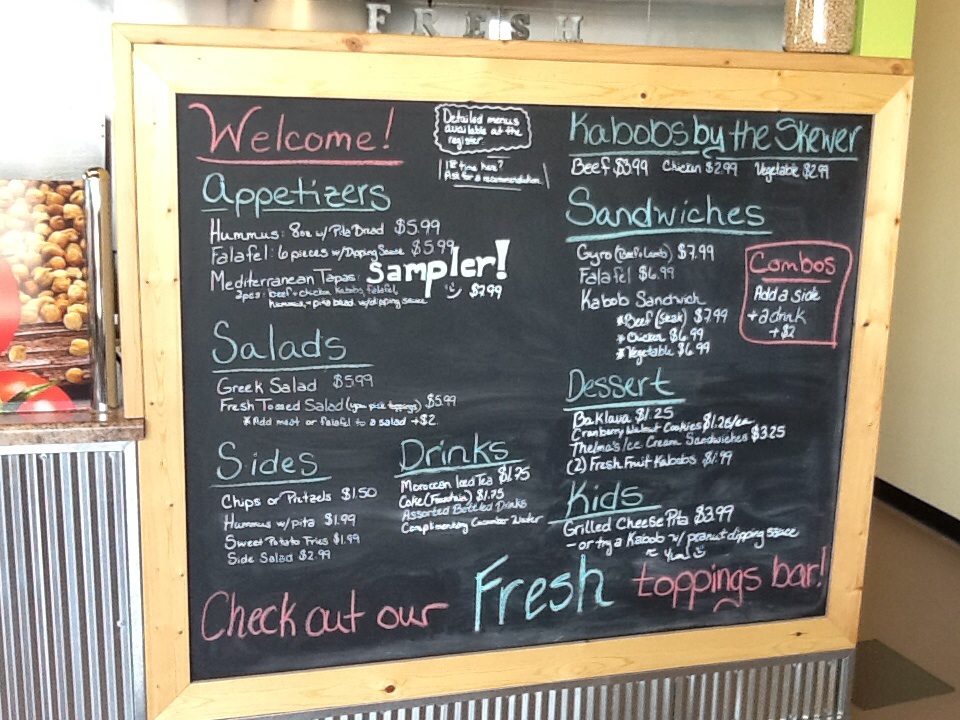 FRESH
Welcome!
Detailed menus
available at the
register.
1st time here?
Ask for a recommendation.
Appetizers
Hummus: 8oz w/ Pita Bread $5.99
Falafel: 6 pieces w/ Dipping Sauce $5.99
Mediterranean Tapas: Sampler!
2pcs: beef + chicken kabobs, falafel, $7.99
hummus, + pita bread w/ dipping sauce
Salads
Greek Salad $5.99
Fresh Tossed Salad (you pick toppings) $5.99
* Add meat or falafel to a salad +$2
Sides
Chips or Pretzels $1.50
Hummus w/ pita $1.99
Sweet Potato Fries $1.99
Side Salad $2.99
Drinks
Moroccan Iced Tea $1.75
Coke (Fountain) $1.75
Assorted Bottled Drinks
Complimentary Cucumber Water
Kabobs by the Skewer
Beef $3.99 Chicken $2.99 Vegetable $2.99
Sandwiches
Gyro (Beef+Lamb) $7.99
Falafel $6.99
Kabob Sandwich
*Beef (Steak) $7.99
*Chicken $6.99
*Vegetable $6.99
Combos
Add a side
+ a drink
+$2
Dessert
Baklava $1.25
Cranberry Walnut Cookies $1.25/ea
Thelma's Ice Cream Sandwiches $3.25
(2) Fresh Fruit Kabobs $1.99
Kids
Grilled Cheese Pita $3.99
- or try a Kabob w/ peanut dipping sauce
~ Yum
Check out our Fresh toppings bar!